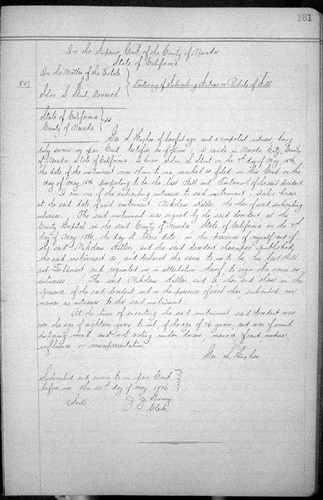 161
In the Superior Court of the County of Nevada
State of California
In the Matter of the Estate
of
John S. Deceased
Testimony of Subscribing Witness on Probate of Will
State of California
County of Nevada } ss
Geo S. Hughes of lawful age and a competent witness being
duly sworn in open Court testifies as follows: I reside in Nevada City County
of Nevada State of California. I knew John S. on the 1st day of May 1896
the date of the instrument now shown to me, marked as filed in this Court on the
day of May 1896 purporting to be the last Will and Testament of the said decedent
I am one of the subscribing witnesses to said instrument. I also knew
at the said date of said instrument Nikolaus the other of said subscribing
witnesses. The said instrument was signed by the said decedent at the
County Hospital in the said County of Nevada State of California on the 1st
day of May 1896 the day it bears date in the presence of myself and of
the said Nikolaus and the said decedent thereupon published
the said instrument as and declared the same to us to be his last Will
and Testament and requested us in attestation thereof to sign the same as
witnesses. The said Nikolaus and I, then and there in the
presence of the said decedent and in the presence of each other subscribed our
names as witnesses to the said instrument.
At the time of executing the said instrument said decedent was
over the age of eighteen years to wit: of the age of 76 years, and was of sound and
disposing mind and not acting under duress, menace, fraud undue
influence or misrepresentation.
Geo. S. Hughes
Subscribed and sworn to in open Court
before me this day of May 1896
(Seal)
Clerk